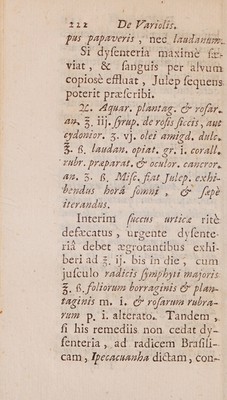 222 De Variolis.
pus papaveris, nec laudanum.
Si dysenteria maximè sæ-
viat, & sanguis per alvum
copiosè effluat, Julep sequens
poterit præscribi.
♃. Aquar. plantag. & rosar.
an. ℥. iij. syrup. de rosis siccis, aut
cydonior. ʒ. vj. olei amigd. dulc.
℥. ß. laudan. opiat. gr. i. corall.
rubr. præparat. & oculor. cancror.
an. ʒ. ß. Misc. fiat Julep. exhi-
bendus horâ somni, & sæpè
iterandus.
Interim succus urticæ ritè
defæcatus, urgente dysente-
riâ debet ægrotantibus exhi-
beri ad ℥. ij. bis in die, cum
jusculo radicis symphyti majoris
℥. ß. foliorum borraginis & plan-
taginis m. i. & rosarum rubra-
rum p. i. alterato. Tandem,
si his remediis non cedat dy-
senteria, ad radicem Brasili-
cam, Ipecacuanha dictam, con-